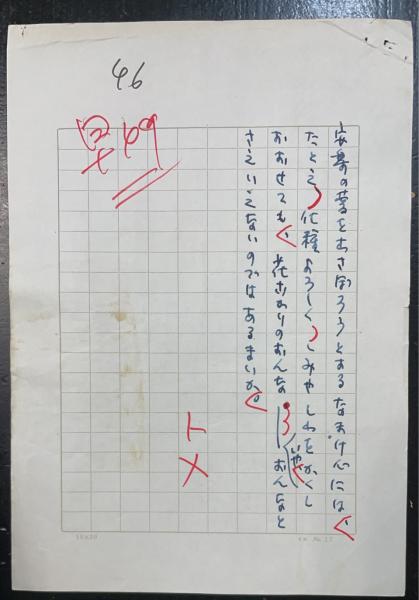 46
安暮の夢をむさぼろうとするなまけ心には
たとえ化粧よろしくしみやしわをかくし
おおせても花ざかりのおんな いやおんなと
さえいえないのではあるまいか。
トメ